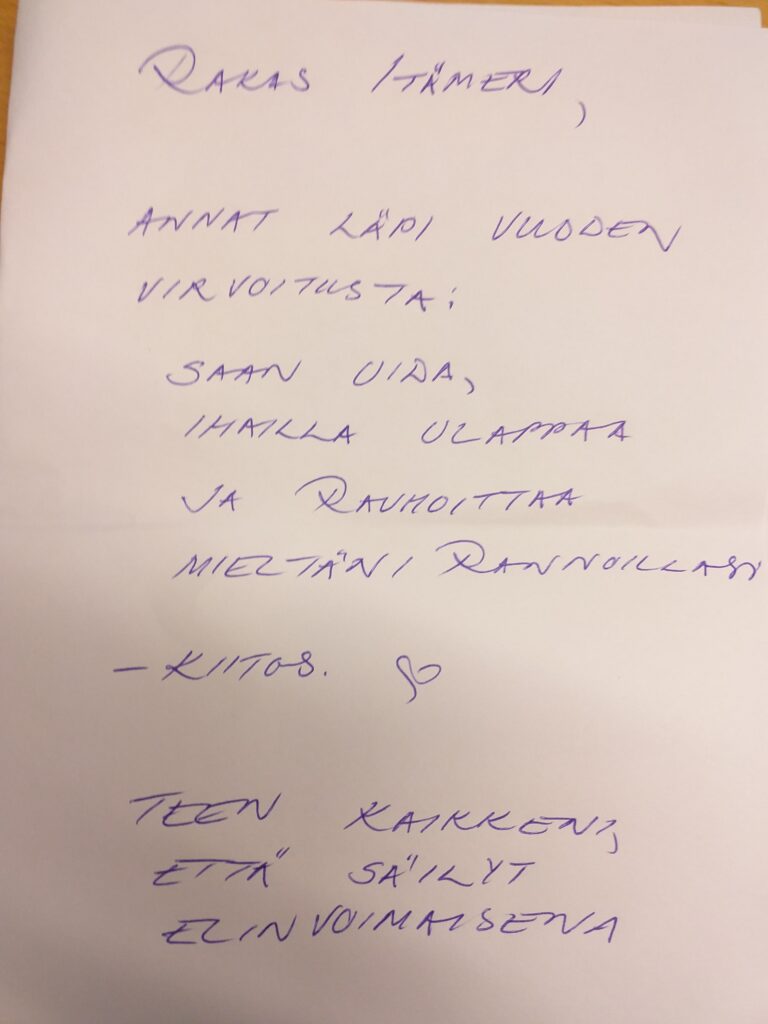 RAKAS ITÄMERI,
ANNAT LÄPI VUODEN
VIRVOITUSTA:
SAAN UIDA,
IHAILLA ULAPPAA
JA RAUHOITTAA
MIELTÄNI RANNOILLASI
– KIITOS. ♡
TEEN KAIKKENI,
ETTÄ SÄILYT
ELINVOIMAISENA